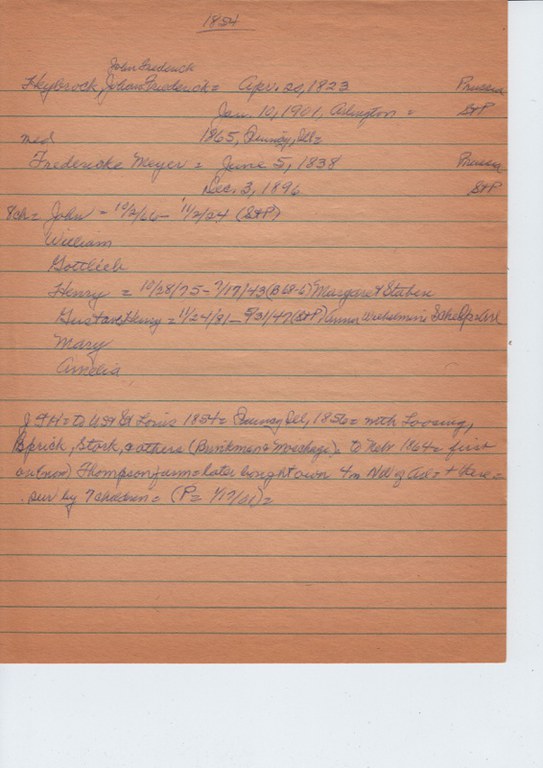 1854
John Frederick
Heybrock, Johan Frederick = Apr. 20, 1823 Prussia
Jan. 10, 1901, Arlington = StP
md 1865, Quincy, Ill =
Fredericke Meyer = June 5, 1838 Prussia
Dec. 3, 1896 StP
ch = John - 10/2/66 - 11/2/24 (StP)
William
Gottlieb
Henry = 10/28/75 - 7/17/43 Margaret Staben
Gustav Henry = 11/24/81 - 5/31/47 (StP)
Mary
Amelia
J F H = to USA St Louis 1854 = Quincy, Ill, 1856 = with Toosing,
Stork, & others to Nebr 1864 = first
on (now) Thompson farm = later bought own 4m NW of =
sur by 7 children = (P = 1/17/01) =